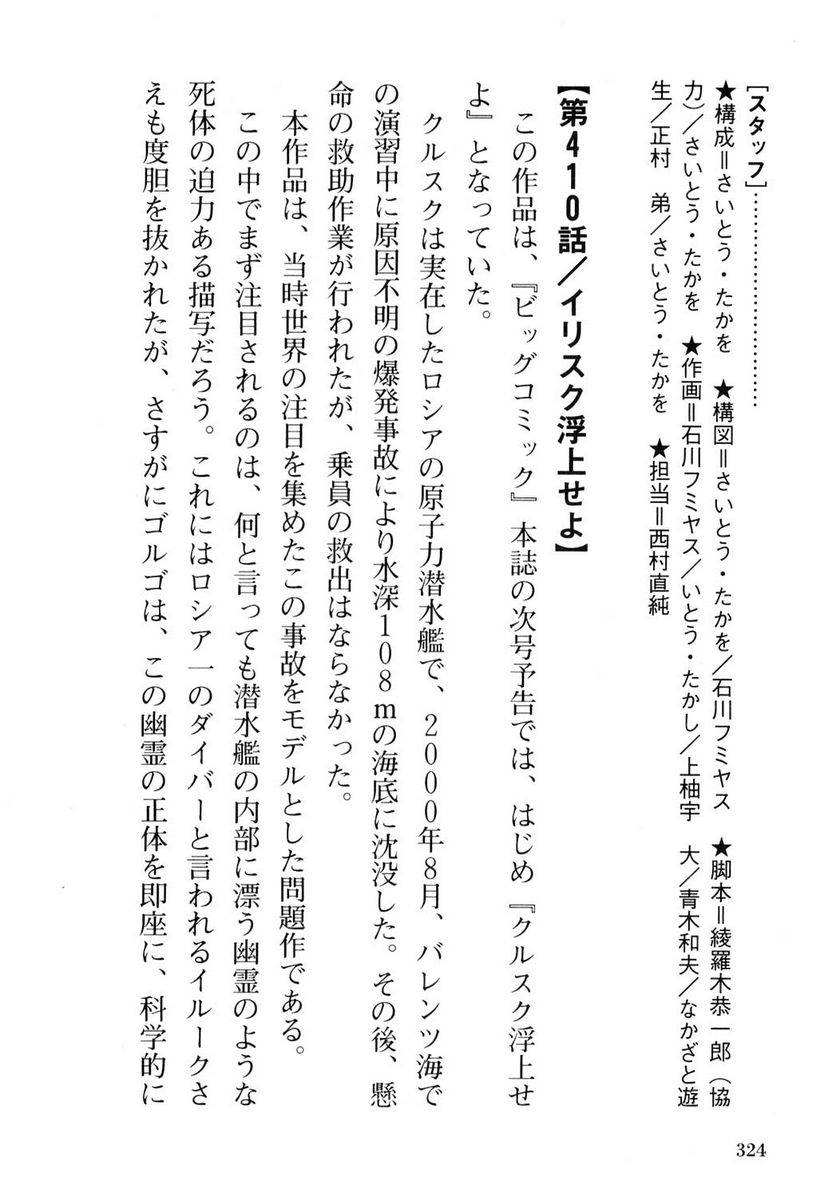 [スタッフ]……………………………
★構成＝さいとう・たかを　★構図＝さいとう・たかを／石川フミヤス　★脚本＝綾羅木恭一郎（協
力）／さいとう・たかを　★作画＝石川フミヤス／いとう・たかし／上柚宇　大／青木和夫／なかざと遊
生／正村　弟／さいとう・たかを　★担当＝西村直純
【第410話／イリスク浮上せよ】
　この作品は、『ビッグコミック』本誌の次号予告では、はじめ『クルスク浮上せ
よ』となっていた。
　クルスクは実在したロシアの原子力潜水艦で、2000年8月、バレンツ海で
の演習中に原因不明の爆発事故により水深108mの海底に沈没した。その後、懸
命の救助作業が行われたが、乗員の救出はならなかった。
　本作品は、当時世界の注目を集めたこの事故をモデルとした問題作である。
　この中でまず注目されるのは、何と言っても潜水艦の内部に漂う幽霊のような
死体の迫力ある描写だろう。これにはロシア一のダイバーと言われるイルークさ
えも度胆を抜かれたが、さすがにゴルゴは、この幽霊の正体を即座に、科学的に
324